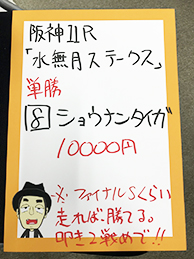 阪神11R
「水無月ステークス」
単勝
8 ショウナンタイガ
10000円
メ・ファイナルSくらい
走れば、勝てる。
叩き2戦めで!!